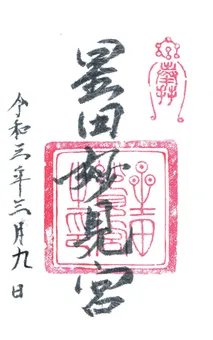 星田妙見宮
令和三年三月九日